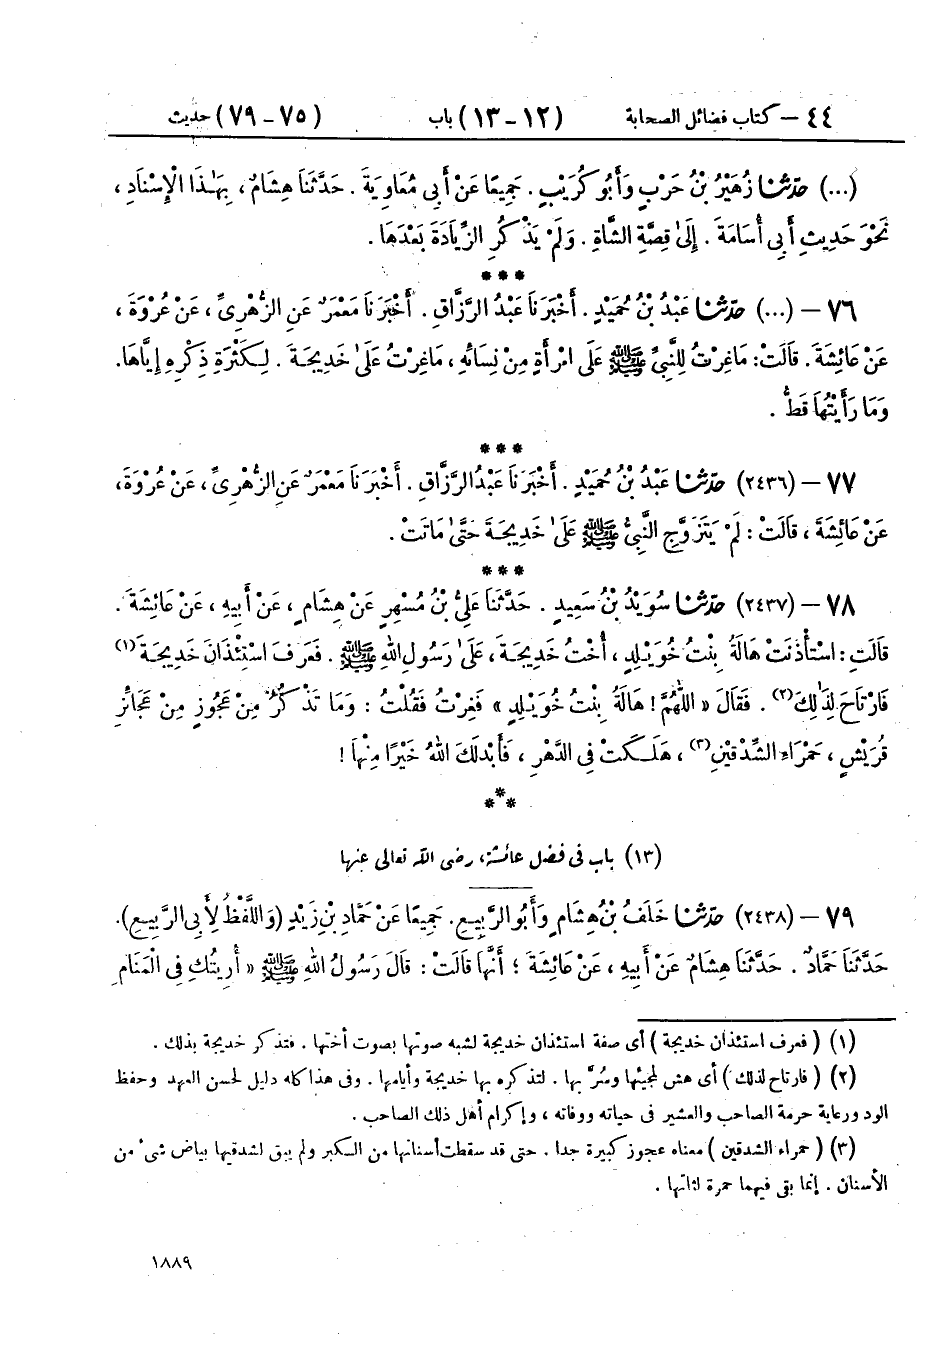 ٤٤ – كتاب فضائل الصحابة (١٢-١٣) باب (٧٥-٧٩) حديث
(...) حدّثنا زُهَيْرُ بْنُ حَرْبٍ وَأَبُو كُرَيْبٍ. جَمِيعًا عَنْ أَبِي مُعَاوِيَةَ. حَدَّثَنَا هِشَامٌ، بِهَـٰذَا الْإِسْنَادِ،
نَحْوَ حَدِيثِ أَبِي أُسَامَةَ. إِلَىٰ قِصَّةِ الشَّاةِ. وَلَمْ يَذْكُرِ الزِّيَادَةَ بَعْدَهَا.
***
٧٦ – (...) حدّثنا عَبْدُ بْنُ حُمَيْدٍ. أَخْبَرَنَا عَبْدُ الرَّزَّاقِ. أَخْبَرَنَا مَعْمَرٌ عَنِ الزُّهْرِىِّ، عَنْ عُرْوَةَ،
عَنْ عَائِشَةَ. قَالَتْ: مَا غِرْتُ لِلنَّبِيِّ ﷺ عَلَى امْرَأَةٍ مِنْ نِسَائِهِ، مَا غِرْتُ عَلَىٰ خَدِيجَةَ. لِكَثْرَةِ ذِكْرِهِ إِيَّاهَا.
وَمَا رَأَيْتُهَا قَطُّ.
***
٧٧ – (٢٤٣٦) حدّثنا عَبْدُ بْنُ حُمَيْدٍ. أَخْبَرَنَا عَبْدُ الرَّزَّاقِ. أَخْبَرَنَا مَعْمَرٌ عَنِ الزُّهْرِىِّ، عَنْ عُرْوَةَ،
عَنْ عَائِشَةَ، قَالَتْ: لَمْ يَتَزَوَّجِ النَّبِيُّ ﷺ عَلَىٰ خَدِيجَةَ حَتَّىٰ مَاتَتْ.
***
٧٨ – (٢٤٣٧) حدّثنا سُوَيْدُ بْنُ سَعِيدٍ. حَدَّثَنَا عَلِيُّ بْنُ مُسْهِرٍ عَنْ هِشَامٍ، عَنْ أَبِيهِ، عَنْ عَائِشَةَ.
قَالَتِ: اسْتَأْذَنَتْ هَالَةُ بِنْتُ خُوَيْلِدٍ، أُخْتُ خَدِيجَةَ، عَلَىٰ رَسُولِ اللهِ ﷺ. فَعَرَفَ اسْتِئْذَانَ خَدِيجَةَ(١)
فَارْتَاحَ لِذَٰلِكَ(٢). فَقَالَ « اللّٰهُمَّ! هَالَةُ بِنْتُ خُوَيْلِدٍ » فَغِرْتُ فَقُلْتُ: وَمَا تَذْكُرُ مِنْ عَجُوزٍ مِنْ عَجَائِزِ
قُرَيْشٍ، حَمْرَاءِ الشِّدْقَيْنِ(٣)، هَلَـكَتْ فِي الدَّهْرِ، فَأَبْدَلَكَ اللهُ خَيْرًا مِنْهَا!
***
(١٣) باب فى فضل عائشة، رضى الله تعالى عنها
٧٩ – (٢٤٣٨) حدّثنا خَلَفُ بْنُ هِشَامٍ وَأَبُو الرَّبِيعِ. جَمِيعًا عَنْ حَمَّادِ بْنِ زَيْدٍ (وَاللَّفْظُ لِأَبِي الرَّبِيعِ).
حَدَّثَنَا حَمَّادٌ. حَدَّثَنَا هِشَامٌ عَنْ أَبِيهِ، عَنْ عَائِشَةَ؛ أَنَّهَا قَالَتْ: قَالَ رَسُولُ اللهِ ﷺ « أُرِيتُكِ فِي الْمَنَامِ
(١) ( فعرف استئذان خديجة ) أى صفة استئذان خديجة لشبه صوتها بصوت أختها. فتذكر خديجة بذلك.
(٢) ( فارتاح لذلك ) أى هش لمجيئها وسُرّ بها. لتذكره بها خديجة وأيامها. وفى هذا كله دليل لحسن العهد وحفظ
الود ورعاية حرمة الصاحب والعشير فى حياته ووفاته، وإكرام أهل ذلك الصاحب.
(٣) ( حمراء الشدقين ) معناه عجوز كبيرة جدا. حتى قد سقطت أسنانها من الـكبر ولم يبق لشدقيها بياض شىء من
الأسنان. إنما بقى فيهما حمرة لثاتها.
١٨٨٩